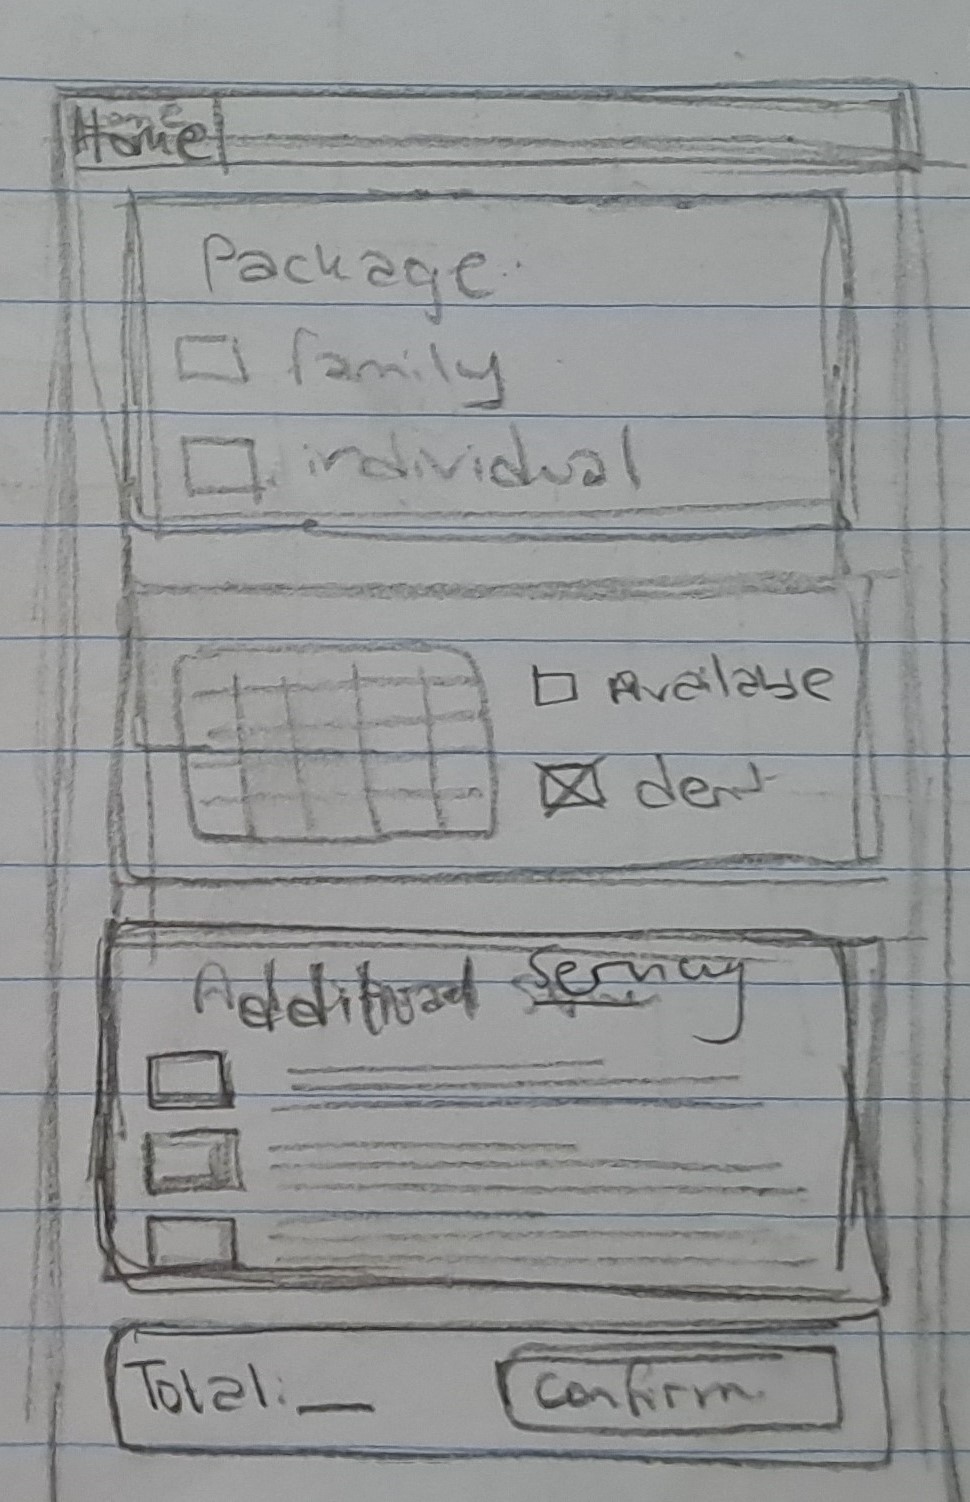 Home
Package
family
individual
Availabe
den
Additional
Total: __
Confirm